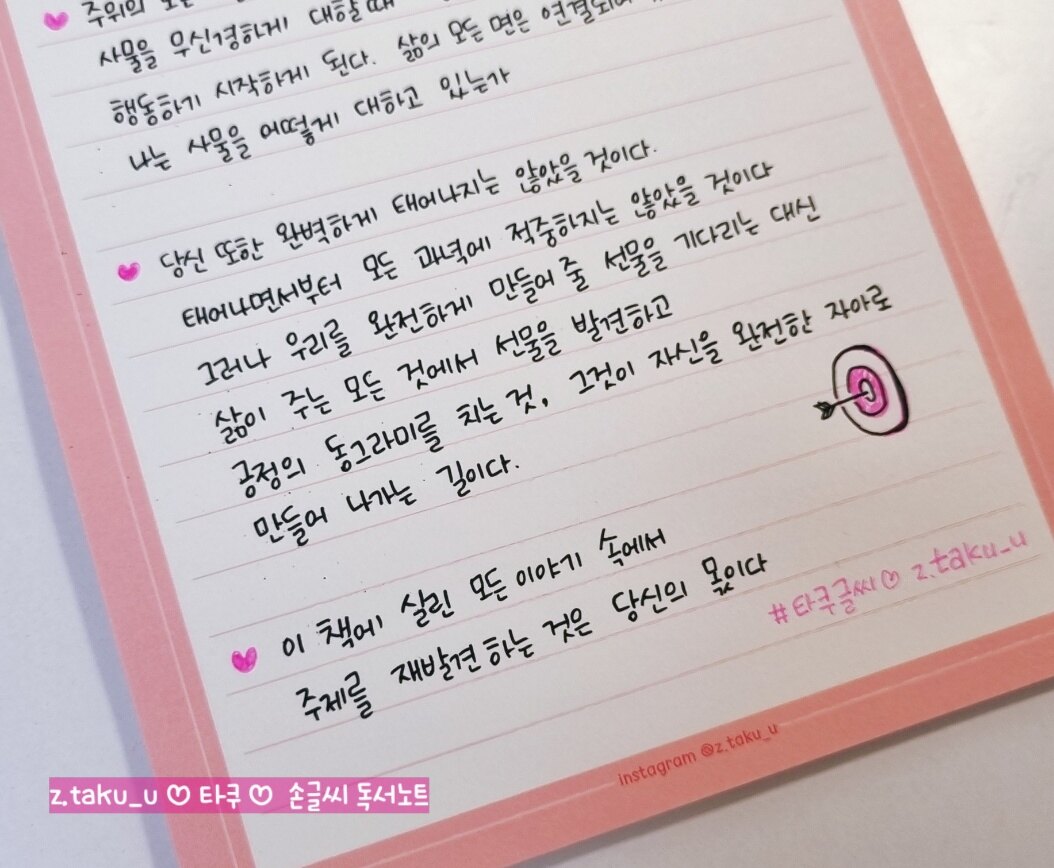 주위의 모든
사물을 무신경하게 대할 때
행동하기 시작하게 된다. 삶의 모든 면은 연결되어
나는 사물을 어떻게 대하고 있는가
당신 또한 완벽하게 태어나지는 않았을 것이다.
태어나면서부터 모든 과녁에 적중하지는 않았을 것이다
그러나 우리를 완전하게 만들어 줄 선물을 기다리는 대신
삶이 주는 모든 것에서 선물을 발견하고
긍정의 동그라미를 치는 것, 그것이 자신을 완전한 자아로
만들어 나가는 길이다.
이 책에 실린 모든 이야기 속에서
주제를 재발견하는 것은 당신의 몫이다
#타쿠글씨♡ z.taku_u
instagram @z.taku_u
z.taku_u ♡ 타쿠 ♡ 손글씨 독서노트